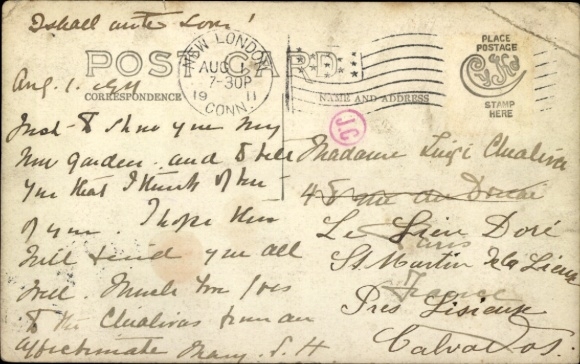 I shall write soon!
POST CARD
NEW LONDON
AUG 1
7-30P
19 11
CONN.
PLACE
POSTAGE
STAMP
HERE
CORRESPONDENCE
NAME AND ADDRESS
Aug. 1. 1911
Just to show you my
new garden and to tell
you that I think of
of you. I hope this
will find you all
well. Much love
to the from an
affectionate Mary. S. H
J.C
Madame Luigi
48 rue de Douai
Paris
France
Le Lieu Doré
St. Martin de la Lieue
Près Lisieux
Calvados.